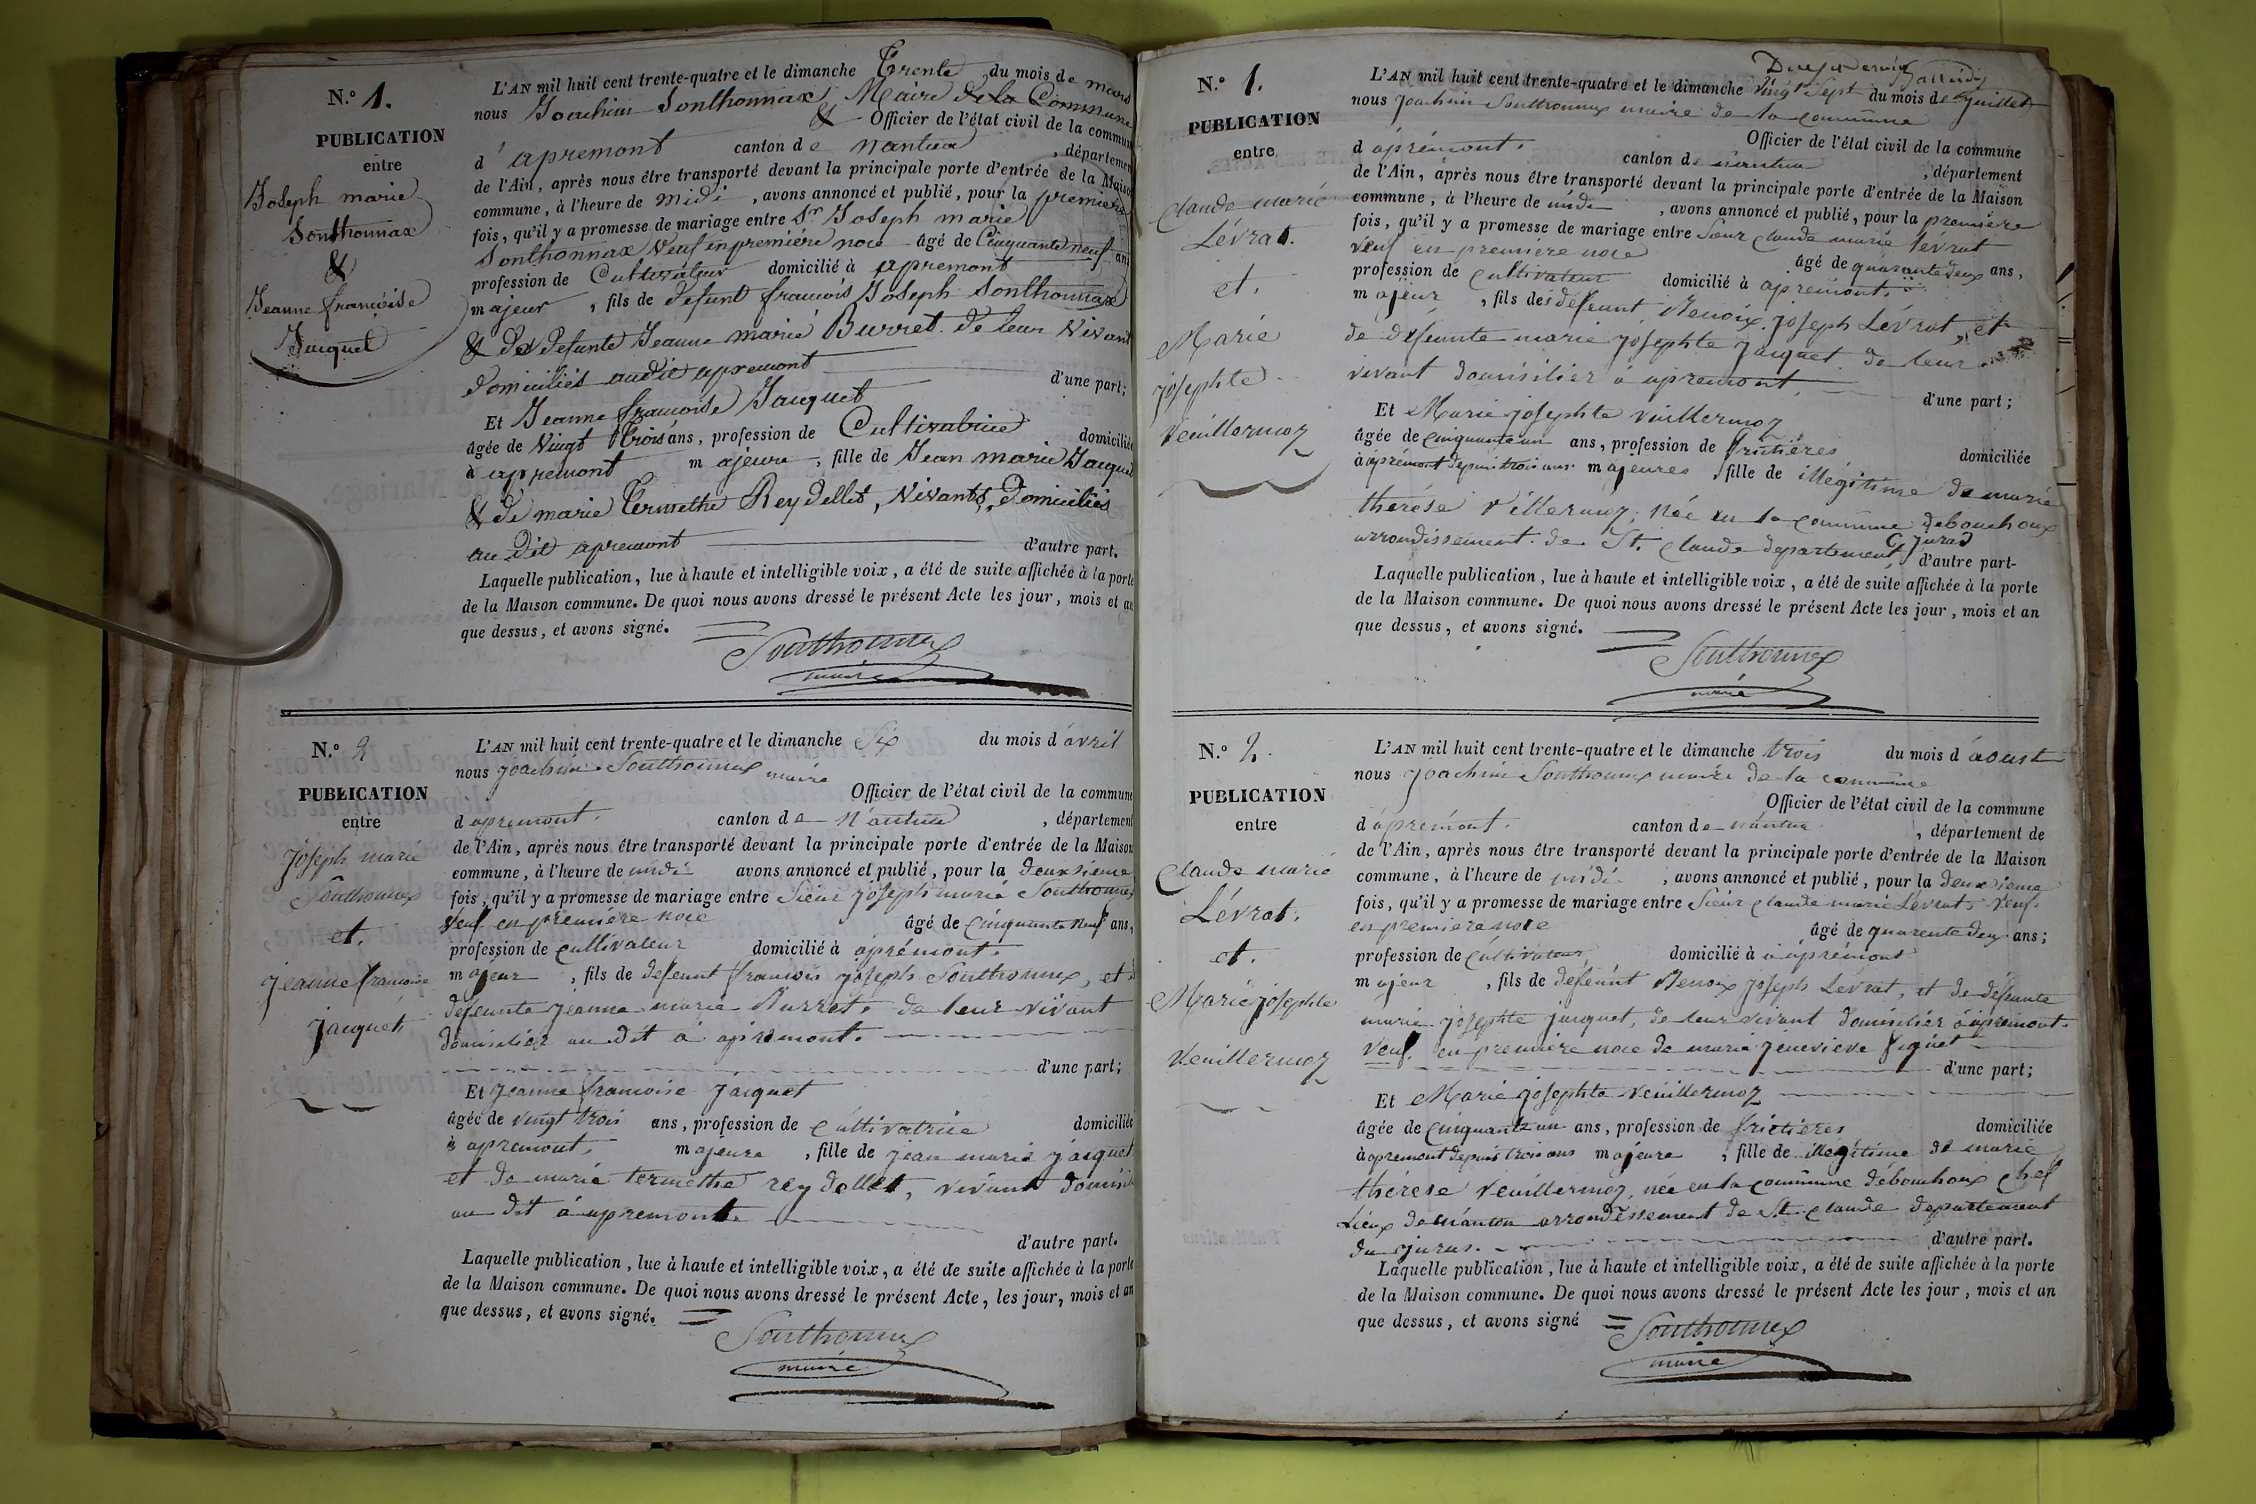 N.º 1.
PUBLICATION
entre
Joseph marie
Sonthonnax
&
Jeanne françoise
Jacquet
L'AN mil huit cent trente-quatre et le dimanche Trente du mois de mars
nous Joachim Sonthonnax Maire de la Commune
& Officier de l'état civil de la commune
d'apremont canton de Nantua , département
de l'Ain, après nous être transporté devant la principale porte d'entrée de la Maison
commune, à l'heure de midi , avons annoncé et publié, pour la premiere
fois, qu'il y a promesse de mariage entre Sr Joseph marie
Sonthonnax Veuf en premiére noce âgé de Cinquante neuf ans
profession de Cultivateur domicilié à apremont
majeur , fils de defunt francois Joseph Sonthonnax
& de defunte Jeanne marie Burret de leur Vivant
domiciliés audit apremont
d'une part;
Et Jeanne francoise Jacquet
âgée de Vingt Trois ans, profession de Cultivatrice domiciliée
à apremont majeure , fille de Jean marie Jacquet
& de marie Termethe Reydellet, Vivants, Domiciliés
au Dit apremont
d'autre part.
Laquelle publication, lue à haute et intelligible voix, a été de suite affichée à la porte
de la Maison commune. De quoi nous avons dressé le présent Acte les jour, mois et an
que dessus, et avons signé.
Sonthonnax
maire
N.º 2
PUBLICATION
entre
joseph marie
Sonthonnax
et.
jeanne francoise
jacquet
L'AN mil huit cent trente-quatre et le dimanche Six du mois d'avril
nous joachim Sonthonnax maire
Officier de l'état civil de la commune
d apremont. canton de Nantua , département
de l'Ain, après nous être transporté devant la principale porte d'entrée de la Maison
commune, à l'heure de midi avons annoncé et publié, pour la deuxsieme
fois, qu'il y a promesse de mariage entre Sieur joseph marie Sonthonnax
Veuf en premiére noce âgé de cinquante neuf ans,
profession de cultivateur domicilié à aprémont.
majeur , fils de defeunt francois joseph Sonthonnax, et
defeunte jeanne marie Burret. de leur vivant
domicilier au dit a apremont.
d'une part;
Et jeanne francoise jacquet
âgée de vingt trois ans, profession de cultivatrice domiciliée
à apremont. majeure , fille de jean marie jacquet
et de marie termethe reydellet, vivant domisil
au dit a apremont.
d'autre part.
Laquelle publication, lue à haute et intelligible voix, a été de suite affichée à la porte
de la Maison commune. De quoi nous avons dressé le présent Acte, les jour, mois et an
que dessus, et avons signé.
Sonthonnax
maire
N.º 1.
PUBLICATION
entre
Claude marie
Lévrat.
et.
Marie
josephte
Veuillermoz
L'AN mil huit cent trente-quatre et le dimanche Vingt Sept du mois de juillet
nous joachim Sonthonnax maire de la commune
Officier de l'état civil de la commune
d'aprémont. canton de nantua , département
de l'Ain, après nous être transporté devant la principale porte d'entrée de la Maison
commune, à l'heure de midi , avons annoncé et publié, pour la premiere
fois, qu'il y a promesse de mariage entre Sieur claude marie Lévrat
veuf en premiere noce âgé de quarante deux ans,
profession de cultivateur domicilié à apremont.
majeur , fils de defeunt joseph Lévrat, et
de défeunte marie josephte jacquet de leur
vivant domisilier a apremont
d'une part;
Et Marie josephte vuillermoz
âgée de cinquante un ans, profession de fruitières domiciliée
à aprémont depuis trois ans majeures , fille de illégitime de marie
thérése Villermoz, Née en la commune debouchoux
arrondissement de St. claude departement jurad
d'autre part-
Laquelle publication, lue à haute et intelligible voix, a été de suite affichée à la porte
de la Maison commune. De quoi nous avons dressé le présent Acte les jour, mois et an
que dessus, et avons signé.
Sonthonnax
maire
N.º 2.
PUBLICATION
entre
Claude marie
Lévrat.
et.
Marie josephte
Veuillermoz
L'AN mil huit cent trente-quatre et le dimanche trois du mois d'aoust
nous joachim Sonthonnax maire de la commune
Officier de l'état civil de la commune
d'apremont. canton de nantua , département de
de l'Ain, après nous être transporté devant la principale porte d'entrée de la Maison
commune, à l'heure de midi , avons annoncé et publié, pour la deuxieme
fois, qu'il y a promesse de mariage entre Sieur claude marie Lévrat, veuf.
en premiere noce âgé de quarente deux ans;
profession de cultivateur domicilié à aprémont
majeur , fils de defeunt joseph Lévrat, et de défeunte
marie josephte jacquet, de leur vivant domisilier a apremont.
veuf. en premiere noce de marie genevieve
d'une part;
Et Marie josephte veuillermoz
âgée de cinquante un ans, profession de fruitières domiciliée
à apremont depuis trois ans majeure , fille de illégitime de marie
thérése Veuillermoz, née en la commune débouchoux chef
Lieux de canton arrondessement de St. claude departement
du juras.
d'autre part.
Laquelle publication, lue à haute et intelligible voix, a été de suite affichée à la porte
de la Maison commune. De quoi nous avons dressé le présent Acte les jour, mois et an
que dessus, et avons signé
Sonthonnax
maire